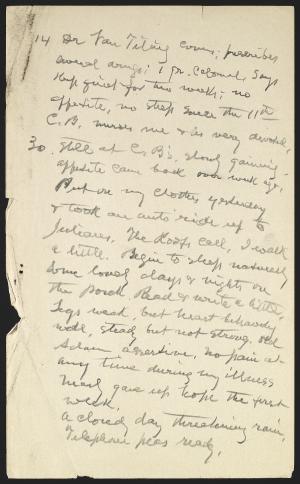 14 Dr Van Tiling comes; prescribes
several drugs; 1 gr. Calomel, says
keep quiet for two weeks; no
appetite, no sleep since the 11th
C.B. nurses me & is very devoted,
30. Still at C. B's, slowly gaining -
appetite came back over week ago,
Put on my clothes yesterday
& took an auto ride up to
Julians. The Roofs call, I walk
a little. Begin to sleep naturally
some lovely days & nights on
the porch. Read & write a little,
Legs weak, but heart behaves
well, steady but not strong, old
Adam assertive, no pain at
any time during my illness
Nearly gave up hope the first
week.
A cloudy day threatening rain,
Telephone peas ready,